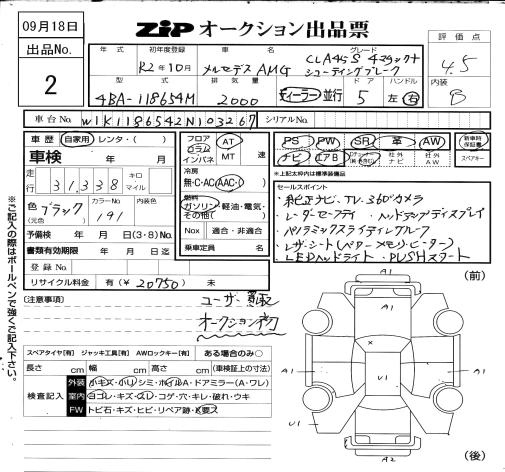 09月18日
ZIP オークション出品票
出品No.
2
年式 初年度登録 車名 グレード
R2年10月 メルセデスAMG CLA45S 4マチック+ シューティングブレーク
評価点
4.5
内装
B
型式 排気量 ドア ハンドル
4BA-118654M 2000 ディーラー 並行 5 左 右
車台No. W1K1186542N103267 シリアルNo.
車歴 自家用・レンタ・( )
車検 年 月
走行 31,338 キロ マイル
色 (元色) ブラック カラーNo. 191
予備検 年 月 日(3・8)No.
書類有効期限 年 月 日迄
登録No.
リサイクル料金 有(¥20750) 未
フロア コラム インパネ AT MT 速
冷房 無・C・AC・AAC・( )
燃料 ガソリン・軽油・電気・その他( )
Nox 適合・非適合
乗車定員 名
PS PW SR 革 AW 新車時保証書
ナビ エアB 社外ナビ 社外AW スペアキー
※上記太枠内は標準装備品
セールスポイント
・純正ナビ、TV、360°カメラ
・レーダーセーフティ ・ヘッドアップディスプレイ
・パノラミックスライディングルーフ
・レザーシート(パワーメモリ・ヒーター)
・LEDヘッドライト ・PUSHスタート
※ご記入の際はボールペンで強くご記入下さい。
(注意事項)
ユーザー買取
オークション初
スペアタイヤ【有】 ジャッキ工具【有】 AWロックキー【有】 ある場合のみ○
長さ cm 幅 cm 高さ cm (車検証上の寸法)
検査記入
外装 小キズ・小リ・シミ・ホイルA・ドアミラー(A・ワレ)
室内 ヨゴレ・キズ・スレ・コゲ・穴・キレ・破れ・ウキ
FW トビ石・キズ・ヒビ・リペア跡・X要ス
(前)
A1
A1
X
A1
U1
A1
U1
A2
(後)